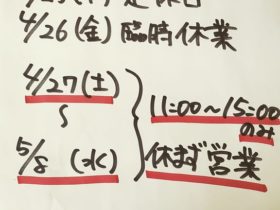 4/26(金)臨時休業
4/27(土)
〜
5/8(水)
11:00〜15:00
のみ
休まず営業